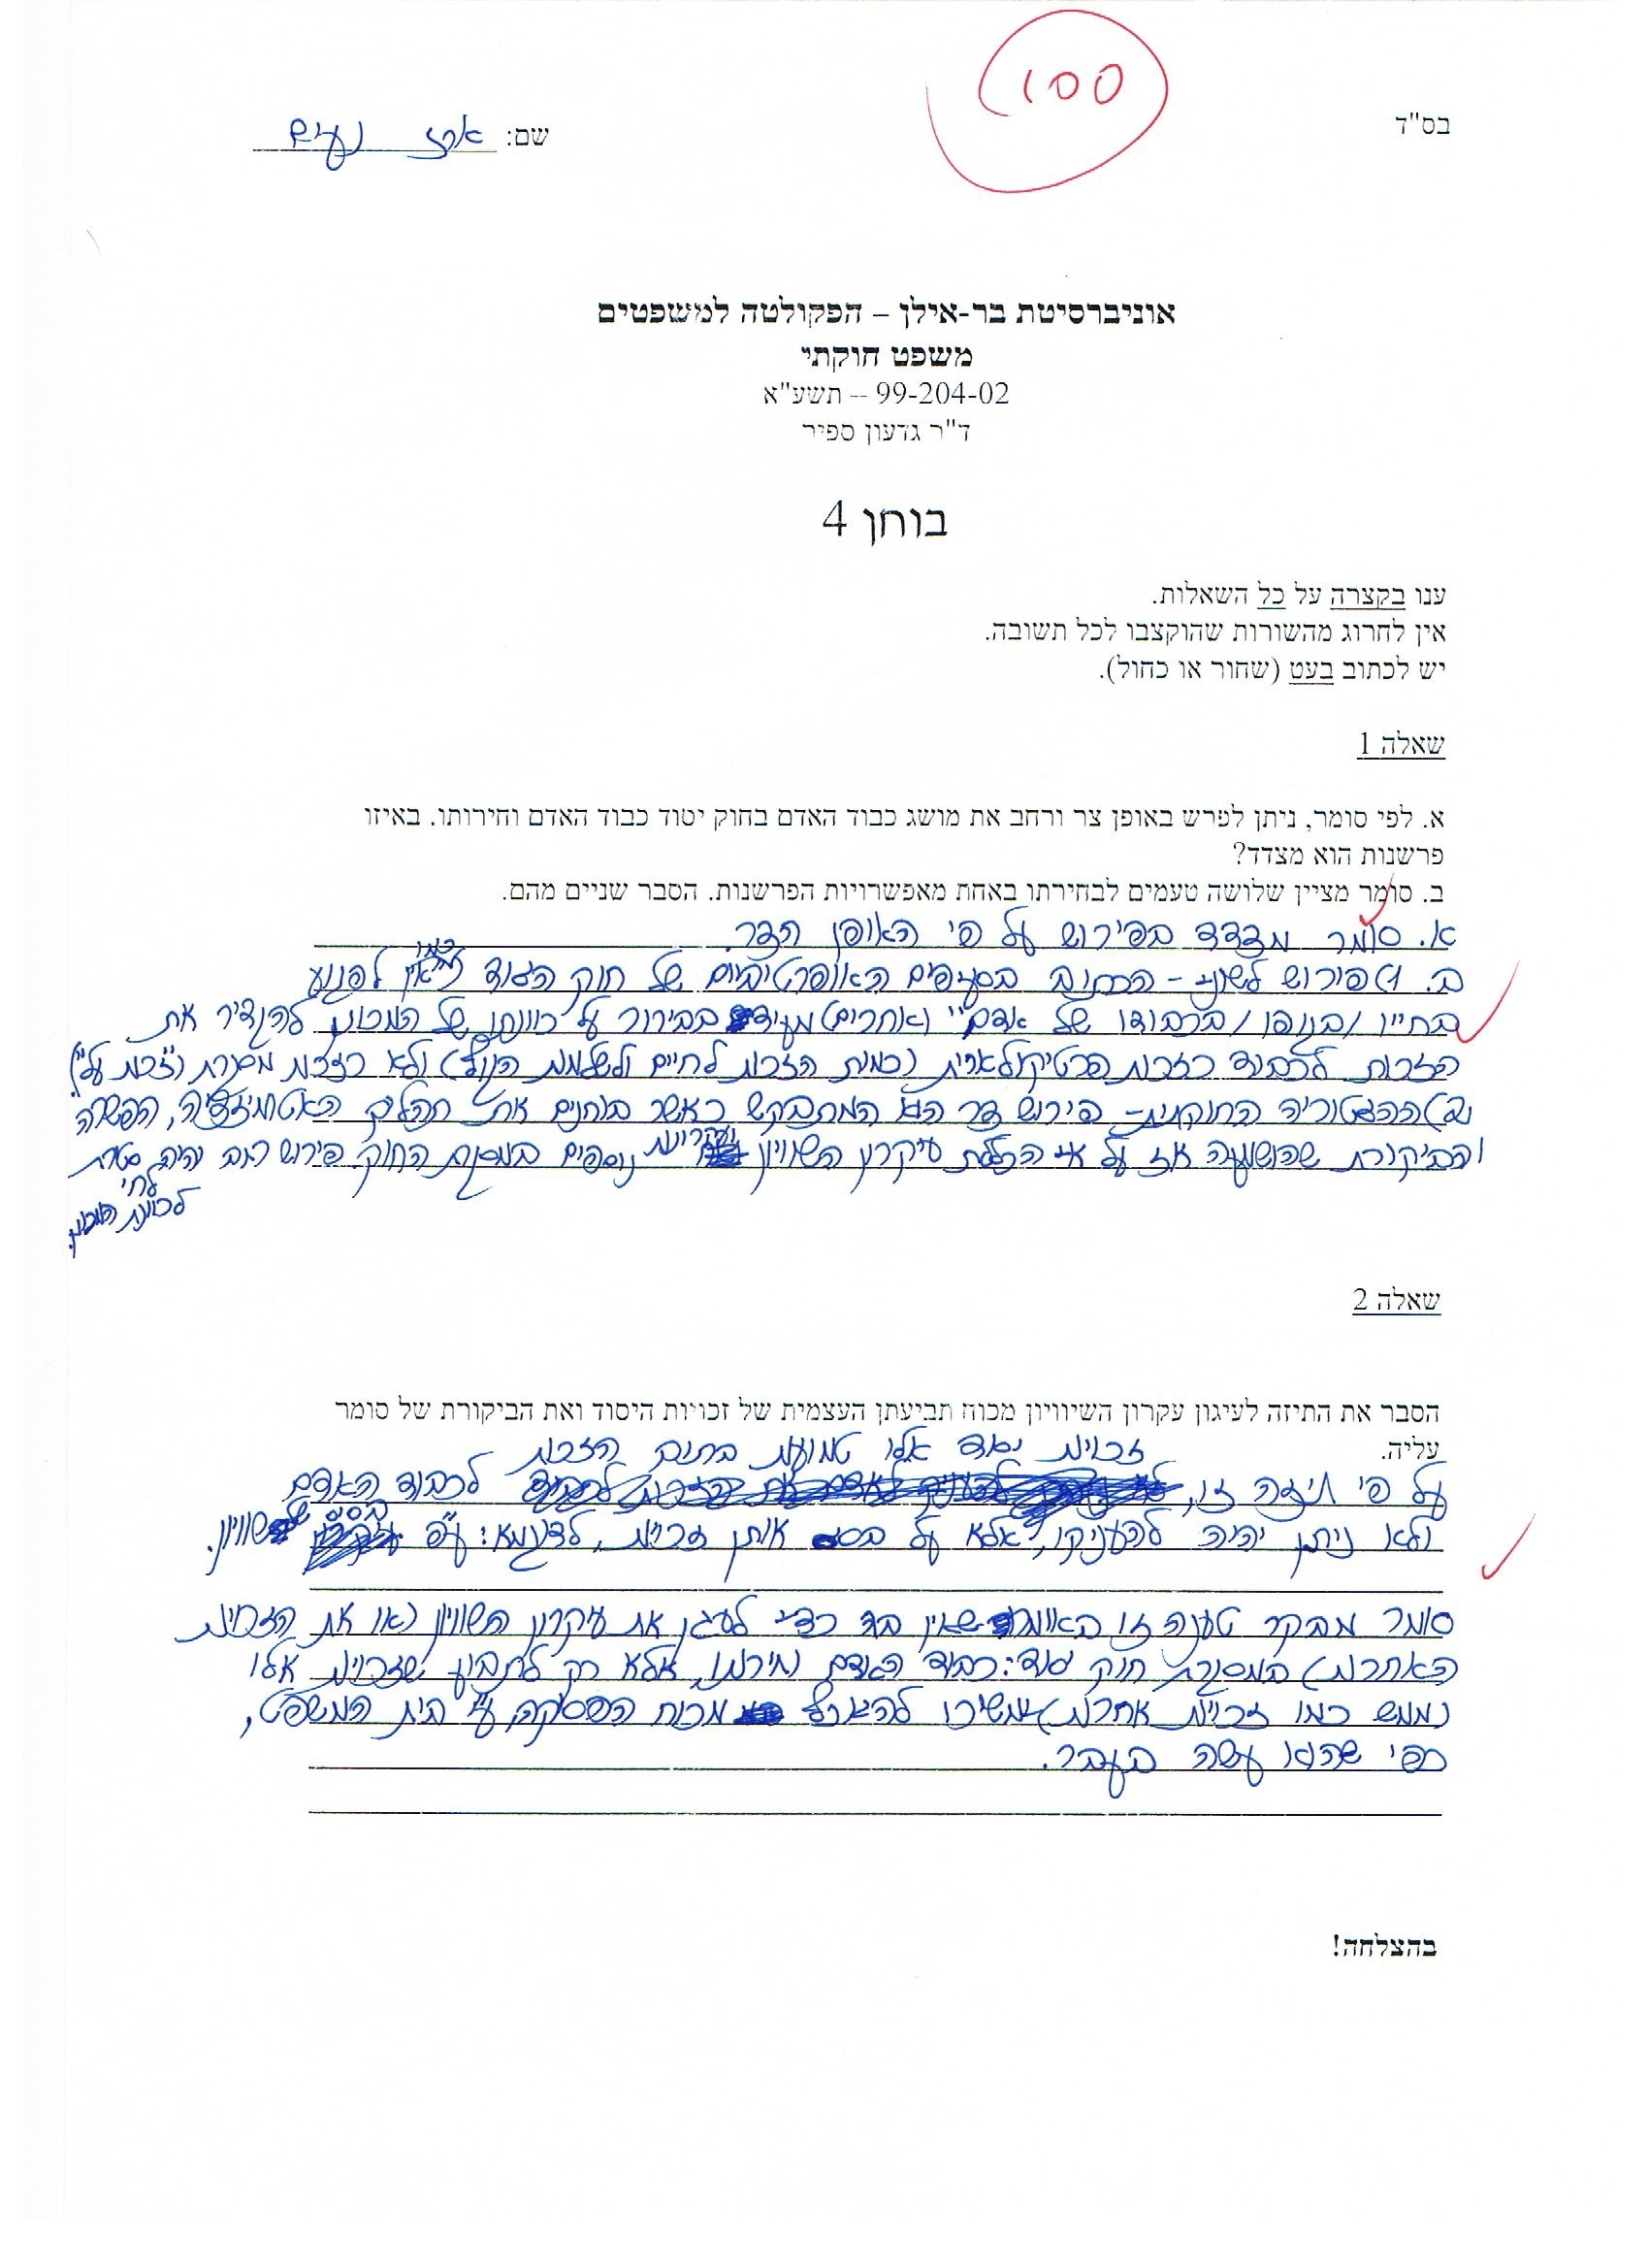 100
בס"ד
שם: ארז נעים
אוניברסיטת בר-אילן – הפקולטה למשפטים
משפט חוקתי
99-204-02 -- תשע"א
ד"ר גדעון ספיר
בוחן 4
ענו בקצרה על כל השאלות.
אין לחרוג מהשורות שהוקצבו לכל תשובה.
יש לכתוב בעט (שחור או כחול).
שאלה 1
א. לפי סומר, ניתן לפרש באופן צר ורחב את מושג כבוד האדם בחוק יסוד כבוד האדם וחירותו. באיזו
פרשנות הוא מצדד?
ב. סומר מציין שלושה טעמים לבחירתו באחת מאפשרויות הפרשנות. הסבר שניים מהם.
א. סומר מצדד בפירוש על פי האופן הצר.
ב. 1) פירוש לשוני - הכתוב בסעיפים האופרטיביים של חוק היסוד כמו "אין לפגוע
בחייו/בגופו/בכבודו של אדם" (ואחרים) מעיד בבירור על כוונתו של המכונן להגדיר את
הזכות לכבוד כזכות פרטיקולארית (כמות הזכות לחיים ולשלמות הגוף) ולא כזכות מסגרת ("זכות על").
2) ההיסטוריה החוקתית - פירוש צר הוא המתבקש כאשר בוחנים את תהליך האטומיזציה, הפשרה
והביקורת שהושמעה אז על אי הכללת עיקרון השוויון ועקרונות נוספים במסגרת החוק. פירוש רחב יהיה סטירת
לחי
לכוונת המכונן.
שאלה 2
הסבר את התיזה לעיגון עקרון השיוויון מכוח תביעתן העצמית של זכויות היסוד ואת הביקורת של סומר
עליה.
זכויות יסוד אלו טמונות בתוך הזכות
על פי תיזה זו, לכבוד האדם
ולא ניתן יהיה להעניקו, אלא על בסיס אותן זכויות, לדוגמא: ע"פ בסיס של שוויון.
סומר מבקר טענה זו באומרו שאין בה כדי לעגן את עיקרון השוויון (או את הזכויות
האחרות) במסגרת חוק יסוד: כבוד האדם וחירותו, אלא רק לתבוע שזכויות אלו
(ממש כמו זכויות אחרות) ימשיכו להיאכף מכוח הפסיקה ע"י בית המשפט,
כפי שהוא עשה בעבר.
בהצלחה!